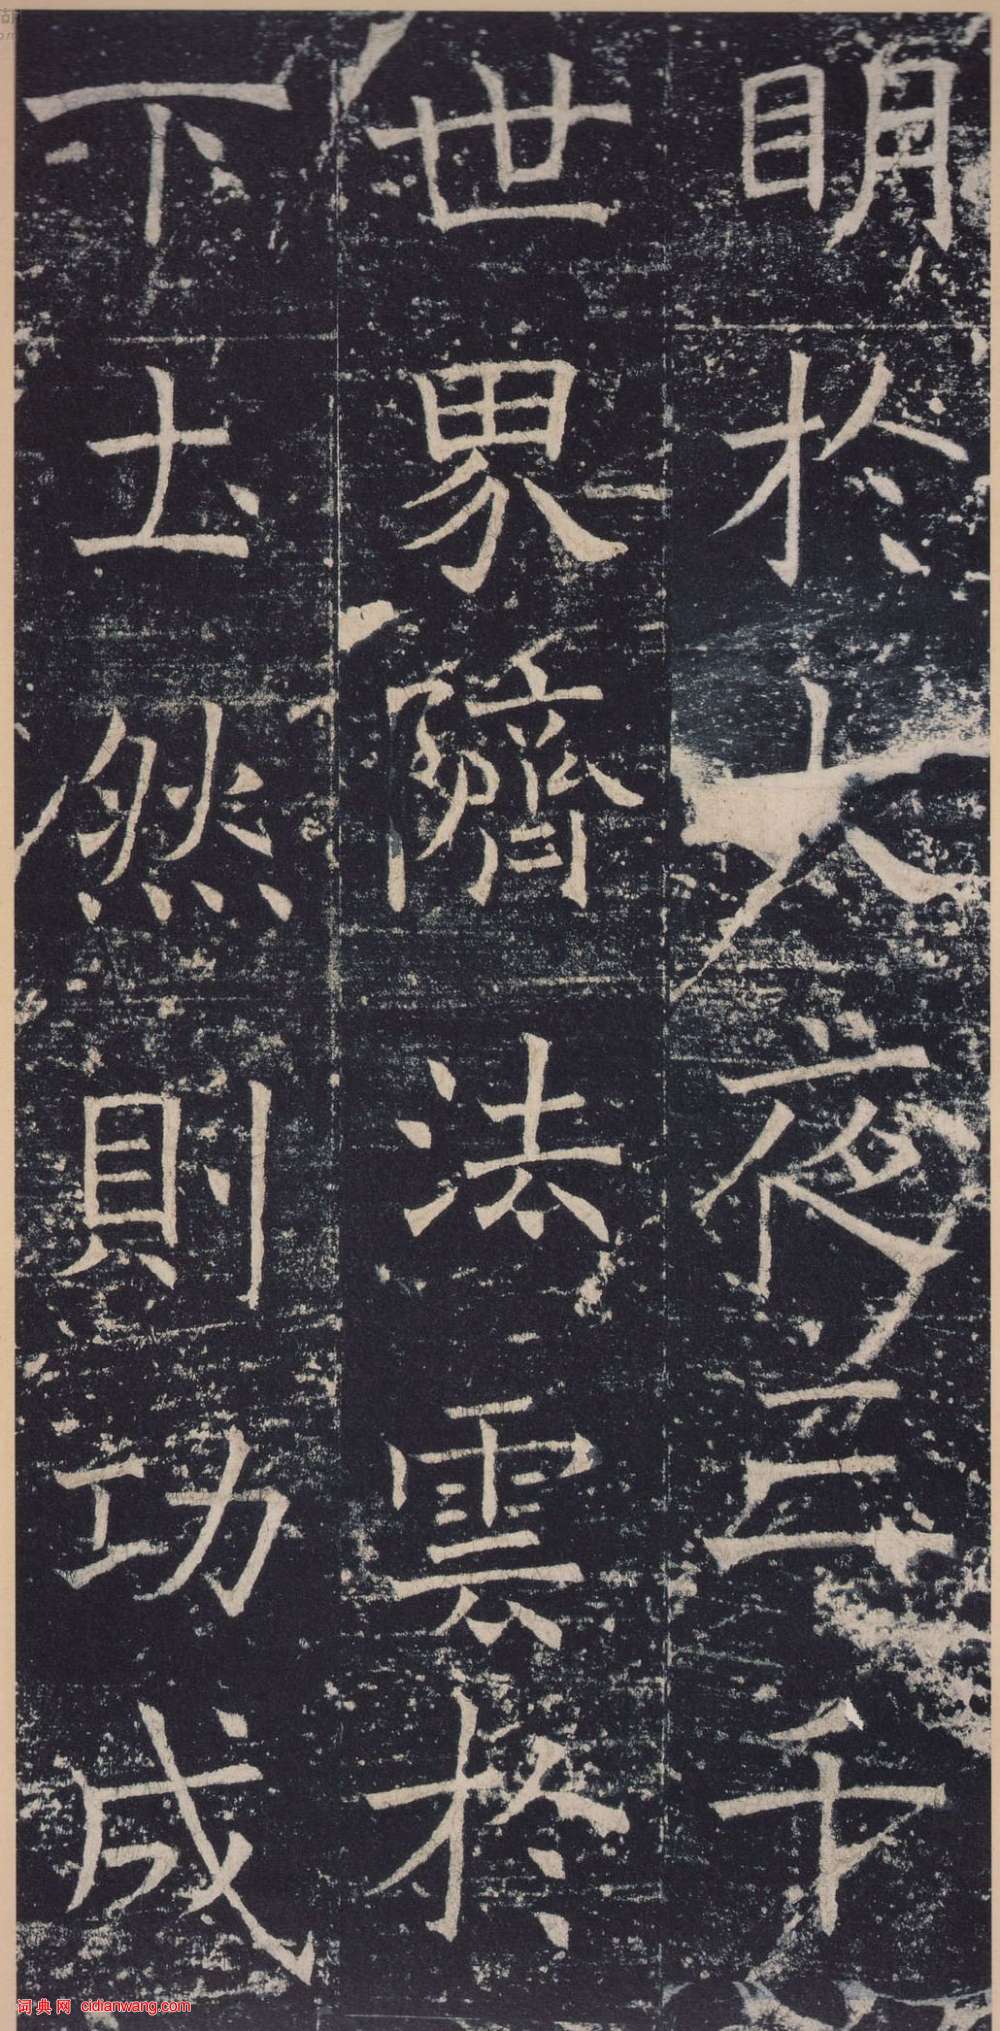 明於大夜三千
世界隮法雲於
下土然則功成
词典网 cidianwang.com